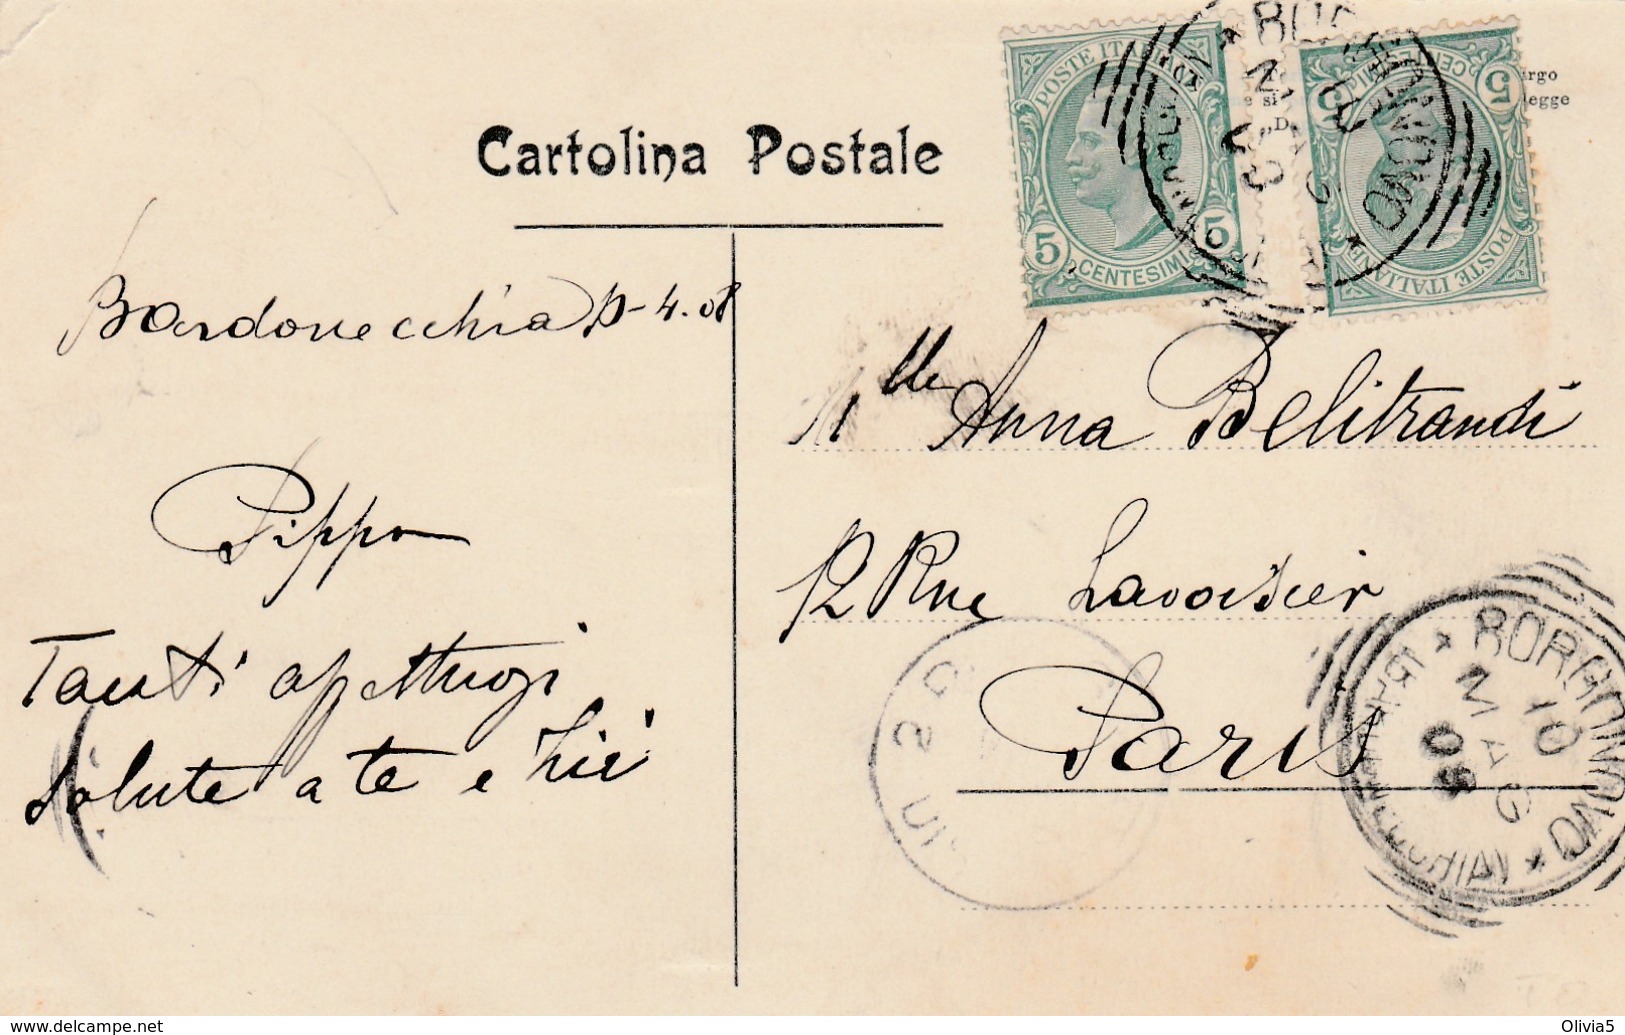 Cartolina Postale
POSTE ITALIANE
5 5
CENTESIMI
POSTE ITALIANE
5 5
CENTESIMI
irgo
legge
Bardonecchia 4.08
Pippo
Tanti affettuosi
Salute a te e Zii
Mlle Anna Belitrandi
12 Rue Lavoisier
Paris
BORGONUOVO
10 MAG 08
(BARDONECCHIA)
www.delcampe.net
Olivia5